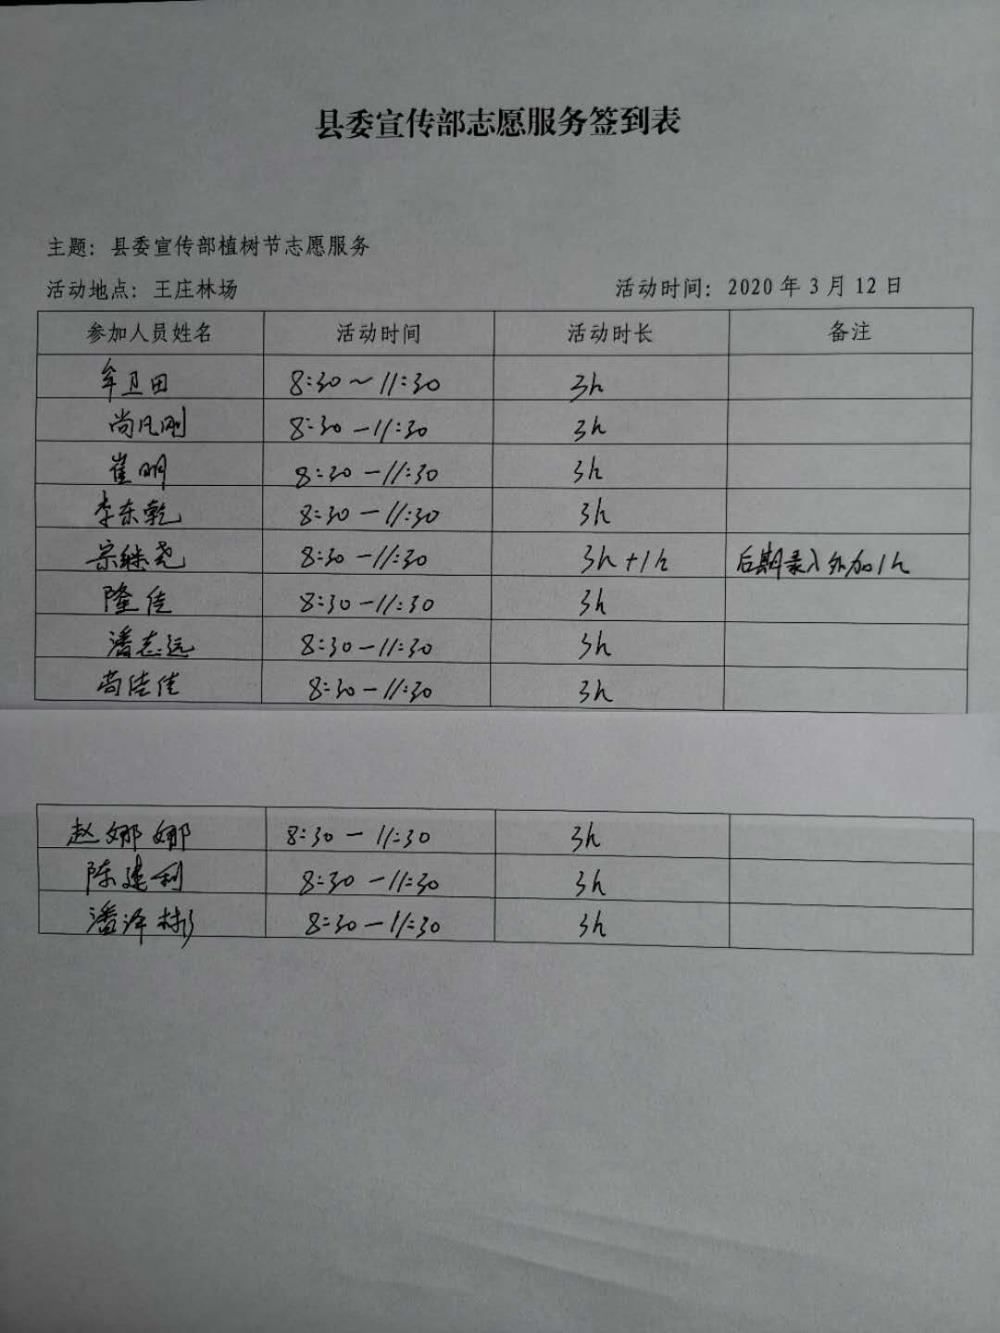 县委宣传部志愿服务签到表
主题：县委宣传部植树节志愿服务
活动地点：王庄林场 活动时间：2020年3月12日
参加人员姓名 活动时间 活动时长 备注
牟卫田 8:30～11:30 3h
尚凡刚 8:30-11:30 3h
崔明 8:30-11:30 3h
李东乾 8:30-11:30 3h
宗继尧 8:30-11:30 3h+1h 后期录入外加1h
隆佳 8:30-11:30 3h
潘志远 8:30-11:30 3h
尚佳佳 8:30-11:30 3h
赵娜娜 8:30-11:30 3h
陈建利 8:30-11:30 3h
潘泽彬 8:30-11:30 3h